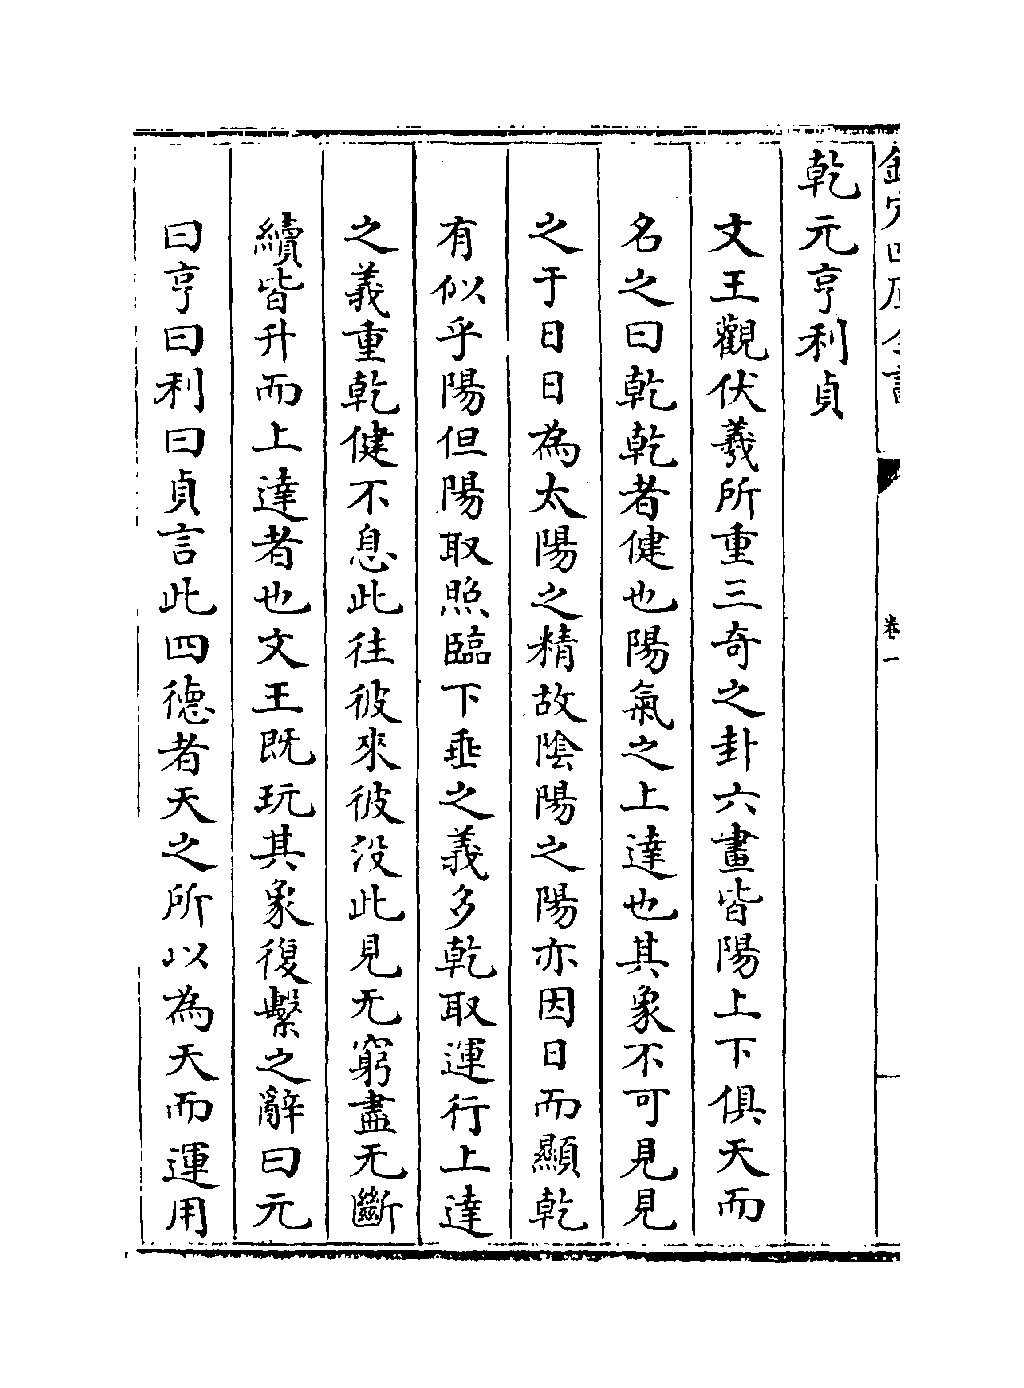 乾元亨利貞
文王觀伏羲所重三奇之卦六畫皆陽上下俱天而
名之曰乾乾者健也陽氣之上達也其象不可見見
之于日日為太陽之精故陰陽之陽亦因日而顯乾
有似乎陽但陽取照臨下垂之義多乾取運行上達
之義重乾健不息此往彼來彼沒此見无窮盡无斷
續皆升而上達者也文王既玩其象復繫之辭曰元
曰亨曰利曰貞言此四德者天之所以為天而運用
卷一